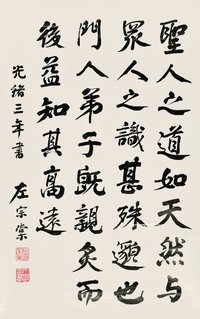 聖人之道如天然与
眾人之識甚殊邈也
門人弟子既親炙而
後益知其高遠
光緒三年書
左宗棠